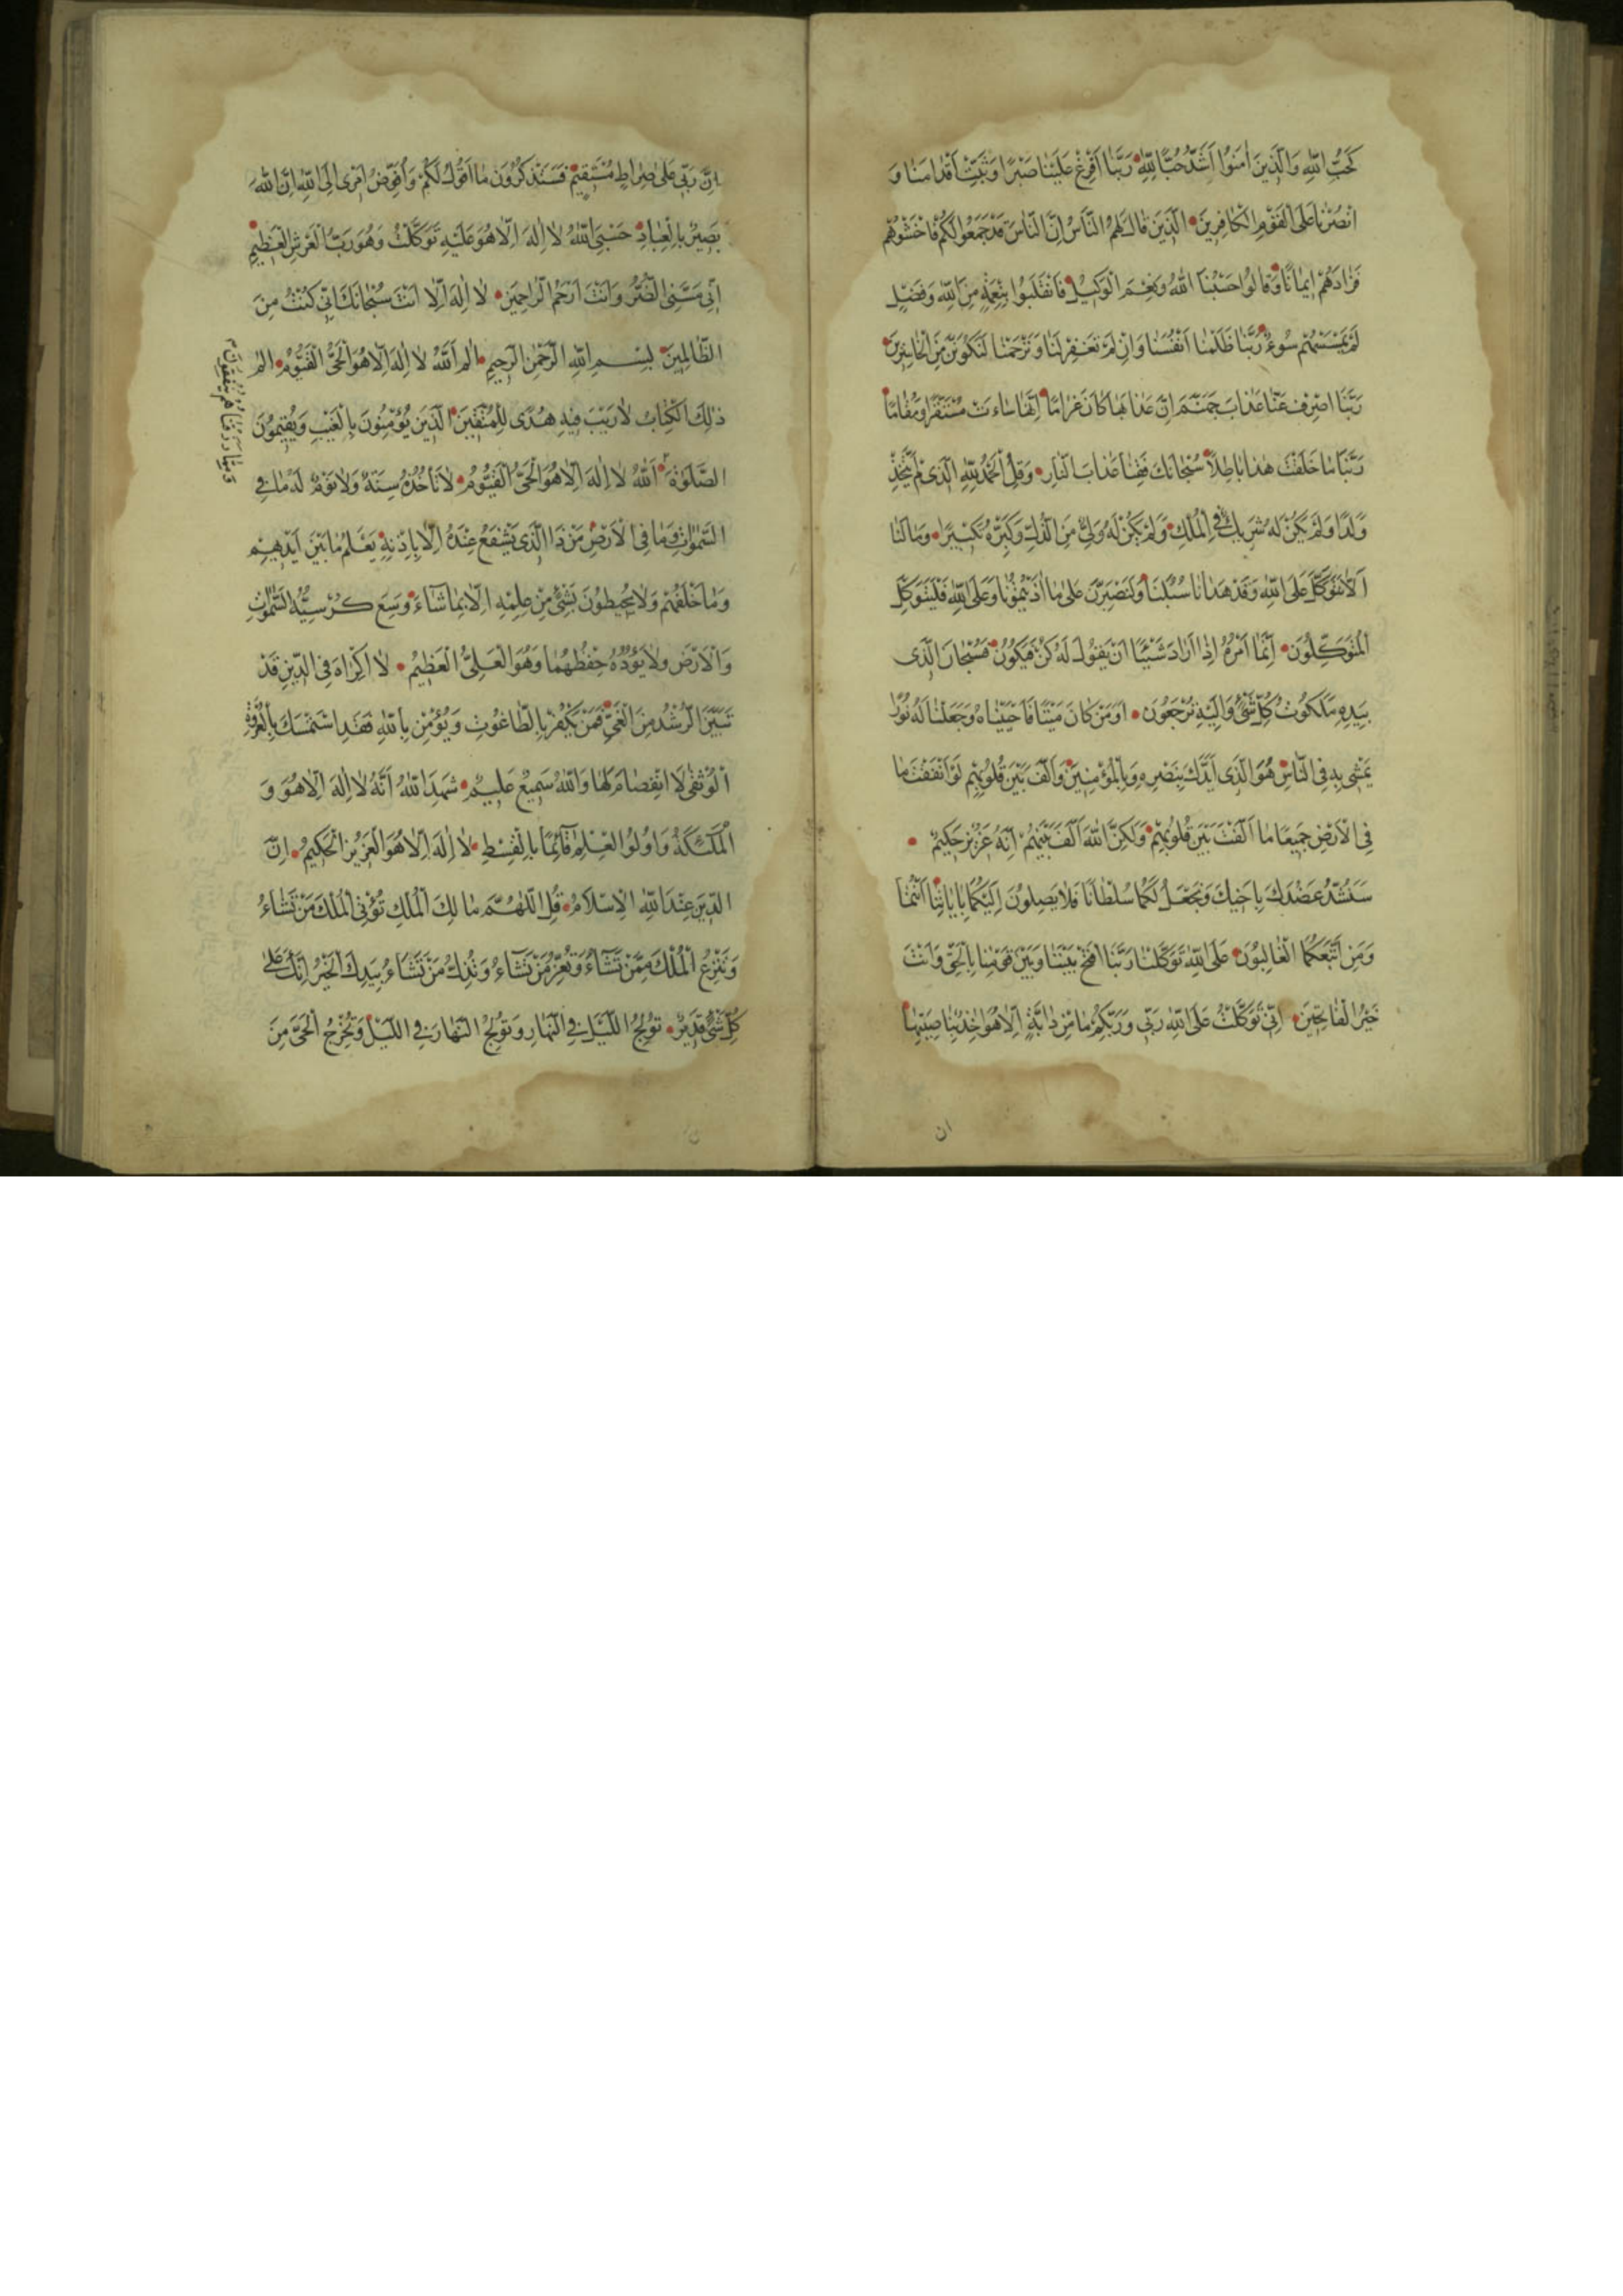 كَحُبِّ اللّٰهِ وَالَّذِينَ اٰمَنُوا اَشَدُّ حُبًّا لِلّٰهِ رَبَّنَا اَفْرِغْ عَلَيْنَا صَبْرًا وَثَبِّتْ اَقْدَامَنَا وَ
انْصُرْنَا عَلَى الْقَوْمِ الْكَافِرِينَ الَّذِينَ قَالَ لَهُمُ النَّاسُ اِنَّ النَّاسَ قَدْ جَمَعُوا لَكُمْ فَاخْشَوْهُمْ
فَزَادَهُمْ اِيمَانًا وَقَالُوا حَسْبُنَا اللّٰهُ وَنِعْمَ الْوَكِيلُ فَانْقَلَبُوا بِنِعْمَةٍ مِنَ اللّٰهِ وَفَضْلٍ
لَمْ يَمْسَسْهُمْ سُوءٌ رَبَّنَا ظَلَمْنَا اَنْفُسَنَا وَاِنْ لَمْ تَغْفِرْ لَنَا وَتَرْحَمْنَا لَنَكُونَنَّ مِنَ الْخَاسِرِينَ
رَبَّنَا اصْرِفْ عَنَّا عَذَابَ جَهَنَّمَ اِنَّ عَذَابَهَا كَانَ غَرَامًا اِنَّهَا سَاءَتْ مُسْتَقَرًّا وَمُقَامًا
رَبَّنَا مَا خَلَقْتَ هٰذَا بَاطِلًا سُبْحَانَكَ فَقِنَا عَذَابَ النَّارِ وَقُلِ الْحَمْدُ لِلّٰهِ الَّذِى لَمْ يَتَّخِذْ
وَلَدًا وَلَمْ يَكُنْ لَهُ شَرِيكٌ فِى الْمُلْكِ وَلَمْ يَكُنْ لَهُ وَلِىٌّ مِنَ الذُّلِّ وَكَبِّرْهُ تَكْبِيرًا وَمَا لَنَا
اَلَّا نَتَوَكَّلَ عَلَى اللّٰهِ وَقَدْ هَدَانَا سُبُلَنَا وَلَنَصْبِرَنَّ عَلٰى مَا اٰذَيْتُمُونَا وَعَلَى اللّٰهِ فَلْيَتَوَكَّلِ
الْمُتَوَكِّلُونَ اِنَّمَا اَمْرُهُ اِذَا اَرَادَ شَيْئًا اَنْ يَقُولَ لَهُ كُنْ فَيَكُونُ فَسُبْحَانَ الَّذِى
بِيَدِهِ مَلَكُوتُ كُلِّ شَىْءٍ وَاِلَيْهِ تُرْجَعُونَ اَوَمَنْ كَانَ مَيْتًا فَاَحْيَيْنَاهُ وَجَعَلْنَا لَهُ نُورًا
يَمْشِى بِهِ فِى النَّاسِ هُوَ الَّذِى اَيَّدَكَ بِنَصْرِهِ وَبِالْمُؤْمِنِينَ وَاَلَّفَ بَيْنَ قُلُوبِهِمْ لَوْ اَنْفَقْتَ مَا
فِى الْاَرْضِ جَمِيعًا مَا اَلَّفْتَ بَيْنَ قُلُوبِهِمْ وَلٰكِنَّ اللّٰهَ اَلَّفَ بَيْنَهُمْ اِنَّهُ عَزِيزٌ حَكِيمٌ
سَنَشُدُّ عَضُدَكَ بِاَخِيكَ وَنَجْعَلُ لَكُمَا سُلْطَانًا فَلَا يَصِلُونَ اِلَيْكُمَا بِاٰيَاتِنَا اَنْتُمَا
وَمَنِ اتَّبَعَكُمَا الْغَالِبُونَ عَلَى اللّٰهِ تَوَكَّلْنَا رَبَّنَا افْتَحْ بَيْنَنَا وَبَيْنَ قَوْمِنَا بِالْحَقِّ وَاَنْتَ
خَيْرُ الْفَاتِحِينَ اِنِّى تَوَكَّلْتُ عَلَى اللّٰهِ رَبِّى وَرَبِّكُمْ مَا مِنْ دَابَّةٍ اِلَّا هُوَ اٰخِذٌ بِنَاصِيَتِهَا
ان
اِنَّ رَبِّى عَلٰى صِرَاطٍ مُسْتَقِيمٍ فَسَتَذْكُرُونَ مَا اَقُولُ لَكُمْ وَاُفَوِّضُ اَمْرِى اِلَى اللّٰهِ اِنَّ اللّٰهَ
بَصِيرٌ بِالْعِبَادِ حَسْبِىَ اللّٰهُ لَا اِلٰهَ اِلَّا هُوَ عَلَيْهِ تَوَكَّلْتُ وَهُوَ رَبُّ الْعَرْشِ الْعَظِيمِ
اَنِّى مَسَّنِىَ الضُّرُّ وَاَنْتَ اَرْحَمُ الرَّاحِمِينَ لَا اِلٰهَ اِلَّا اَنْتَ سُبْحَانَكَ اِنِّى كُنْتُ مِنَ
الظَّالِمِينَ بِسْمِ اللّٰهِ الرَّحْمٰنِ الرَّحِيمِ الٓمٓ اَللّٰهُ لَا اِلٰهَ اِلَّا هُوَ الْحَىُّ الْقَيُّومُ الٓمٓ
ذٰلِكَ الْكِتَابُ لَا رَيْبَ فِيهِ هُدًى لِلْمُتَّقِينَ الَّذِينَ يُؤْمِنُونَ بِالْغَيْبِ وَيُقِيمُونَ
الصَّلٰوةَ اَللّٰهُ لَا اِلٰهَ اِلَّا هُوَ الْحَىُّ الْقَيُّومُ لَا تَأْخُذُهُ سِنَةٌ وَلَا نَوْمٌ لَهُ مَا فِى
السَّمٰوَاتِ وَمَا فِى الْاَرْضِ مَنْ ذَا الَّذِى يَشْفَعُ عِنْدَهُ اِلَّا بِاِذْنِهِ يَعْلَمُ مَا بَيْنَ اَيْدِيهِمْ
وَمَا خَلْفَهُمْ وَلَا يُحِيطُونَ بِشَىْءٍ مِنْ عِلْمِهِ اِلَّا بِمَا شَاءَ وَسِعَ كُرْسِيُّهُ السَّمٰوَاتِ
وَالْاَرْضَ وَلَا يَؤُدُهُ حِفْظُهُمَا وَهُوَ الْعَلِىُّ الْعَظِيمُ لَا اِكْرَاهَ فِى الدِّينِ قَدْ
تَبَيَّنَ الرُّشْدُ مِنَ الْغَىِّ فَمَنْ يَكْفُرْ بِالطَّاغُوتِ وَيُؤْمِنْ بِاللّٰهِ فَقَدِ اسْتَمْسَكَ بِالْعُرْوَةِ
الْوُثْقٰى لَا انْفِصَامَ لَهَا وَاللّٰهُ سَمِيعٌ عَلِيمٌ شَهِدَ اللّٰهُ اَنَّهُ لَا اِلٰهَ اِلَّا هُوَ وَ
الْمَلٰئِكَةُ وَاُولُوا الْعِلْمِ قَائِمًا بِالْقِسْطِ لَا اِلٰهَ اِلَّا هُوَ الْعَزِيزُ الْحَكِيمُ اِنَّ
الدِّينَ عِنْدَ اللّٰهِ الْاِسْلَامُ قُلِ اللّٰهُمَّ مَالِكَ الْمُلْكِ تُؤْتِى الْمُلْكَ مَنْ تَشَاءُ
وَتَنْزِعُ الْمُلْكَ مِمَّنْ تَشَاءُ وَتُعِزُّ مَنْ تَشَاءُ وَتُذِلُّ مَنْ تَشَاءُ بِيَدِكَ الْخَيْرُ اِنَّكَ عَلٰى
كُلِّ شَىْءٍ قَدِيرٌ تُولِجُ اللَّيْلَ فِى النَّهَارِ وَتُولِجُ النَّهَارَ فِى اللَّيْلِ وَتُخْرِجُ الْحَىَّ مِنَ
وممّا رزقناهم ينفقون